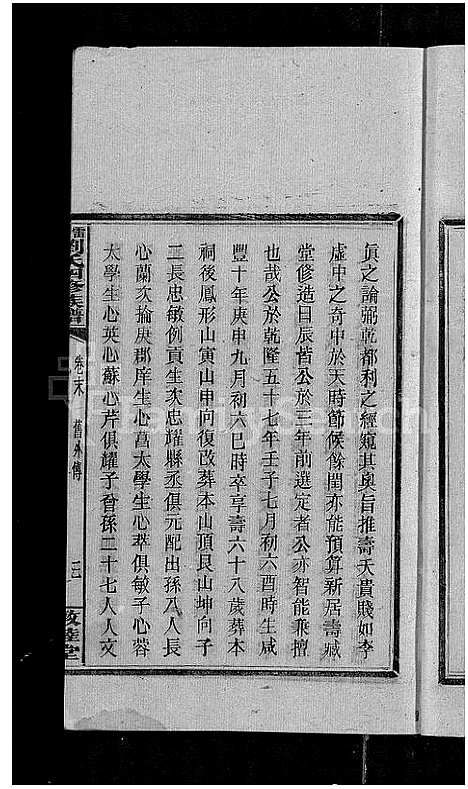 眞之論弼乾都利之經窺其奥旨推壽夭貴賤如李
虛中之奇中於天時節候餘閏亦能預算新居壽藏
堂修造日辰皆公於三年前選定者公亦智能兼擅
也哉公於乾隆五十七年壬子七月初六酉時生咸
豐十年庚申九月初六巳時卒享壽六十八歲葬本
祠後鳳形山寅山申向復改葬本山頂艮山坤向子
二長忠敏例貢生次忠耀縣丞俱元配出孫八人長
心蘭次掄庚郡庠生心菖太學生心萃俱敏子心蓉
太學生心英心蘇心芹俱耀子曾孫二十七人人文
劉氏四修族譜
卷末
舊外傳
三
敦睦堂
FamilySearch